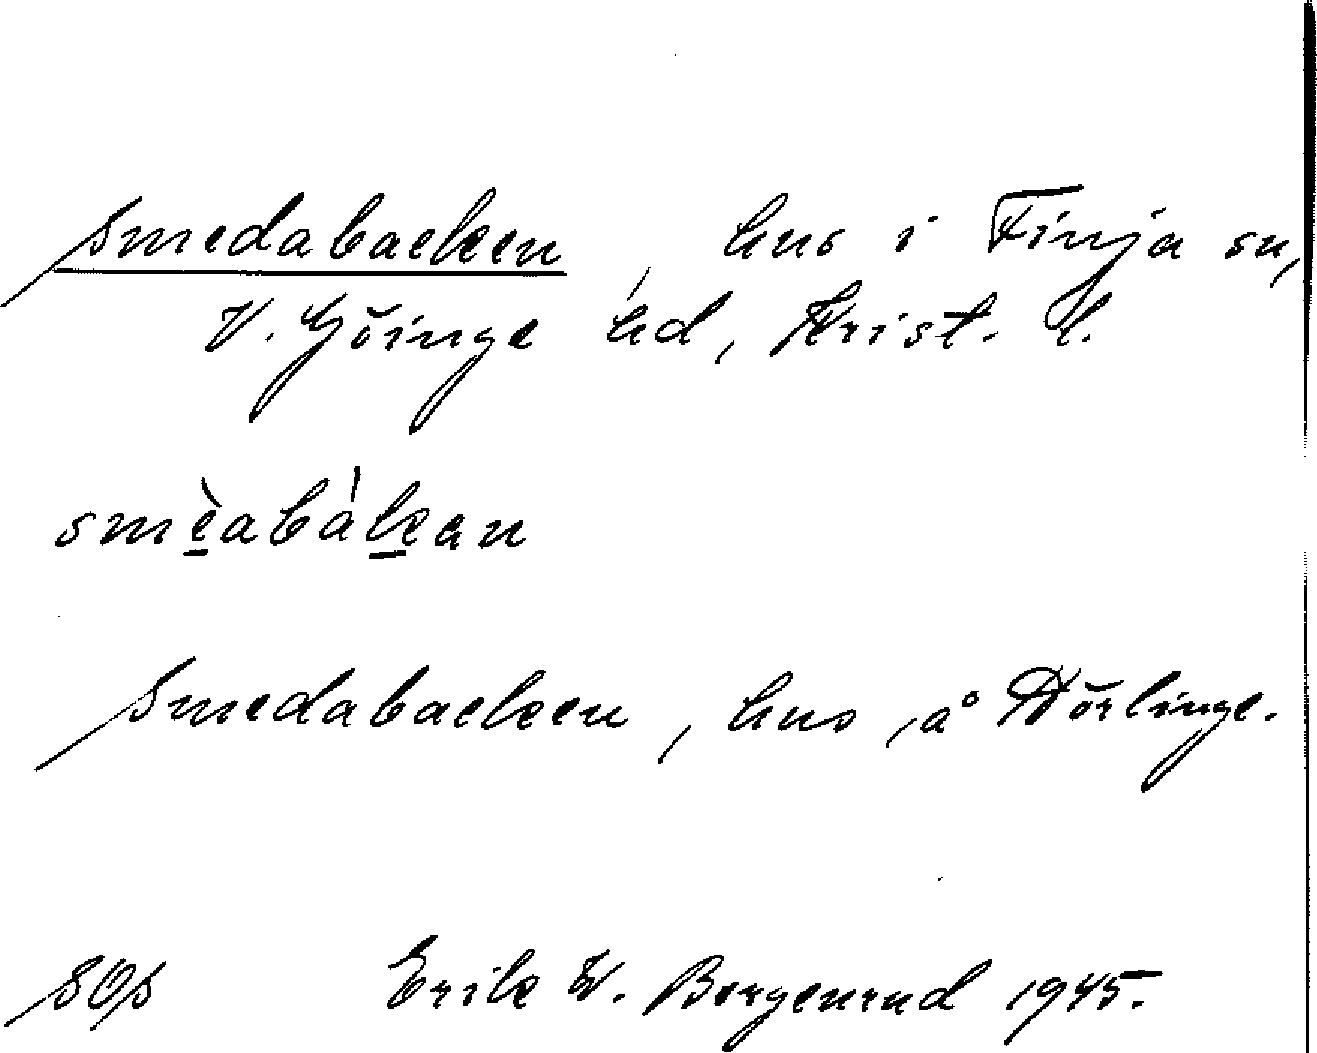 Smedabacken, hus i Finja sn,
V. Göinge hd, Krist. l.
smèabàkan
Smedabacken, hus å Dörlinge.
SOp Erik W. Borgenrud 1945.